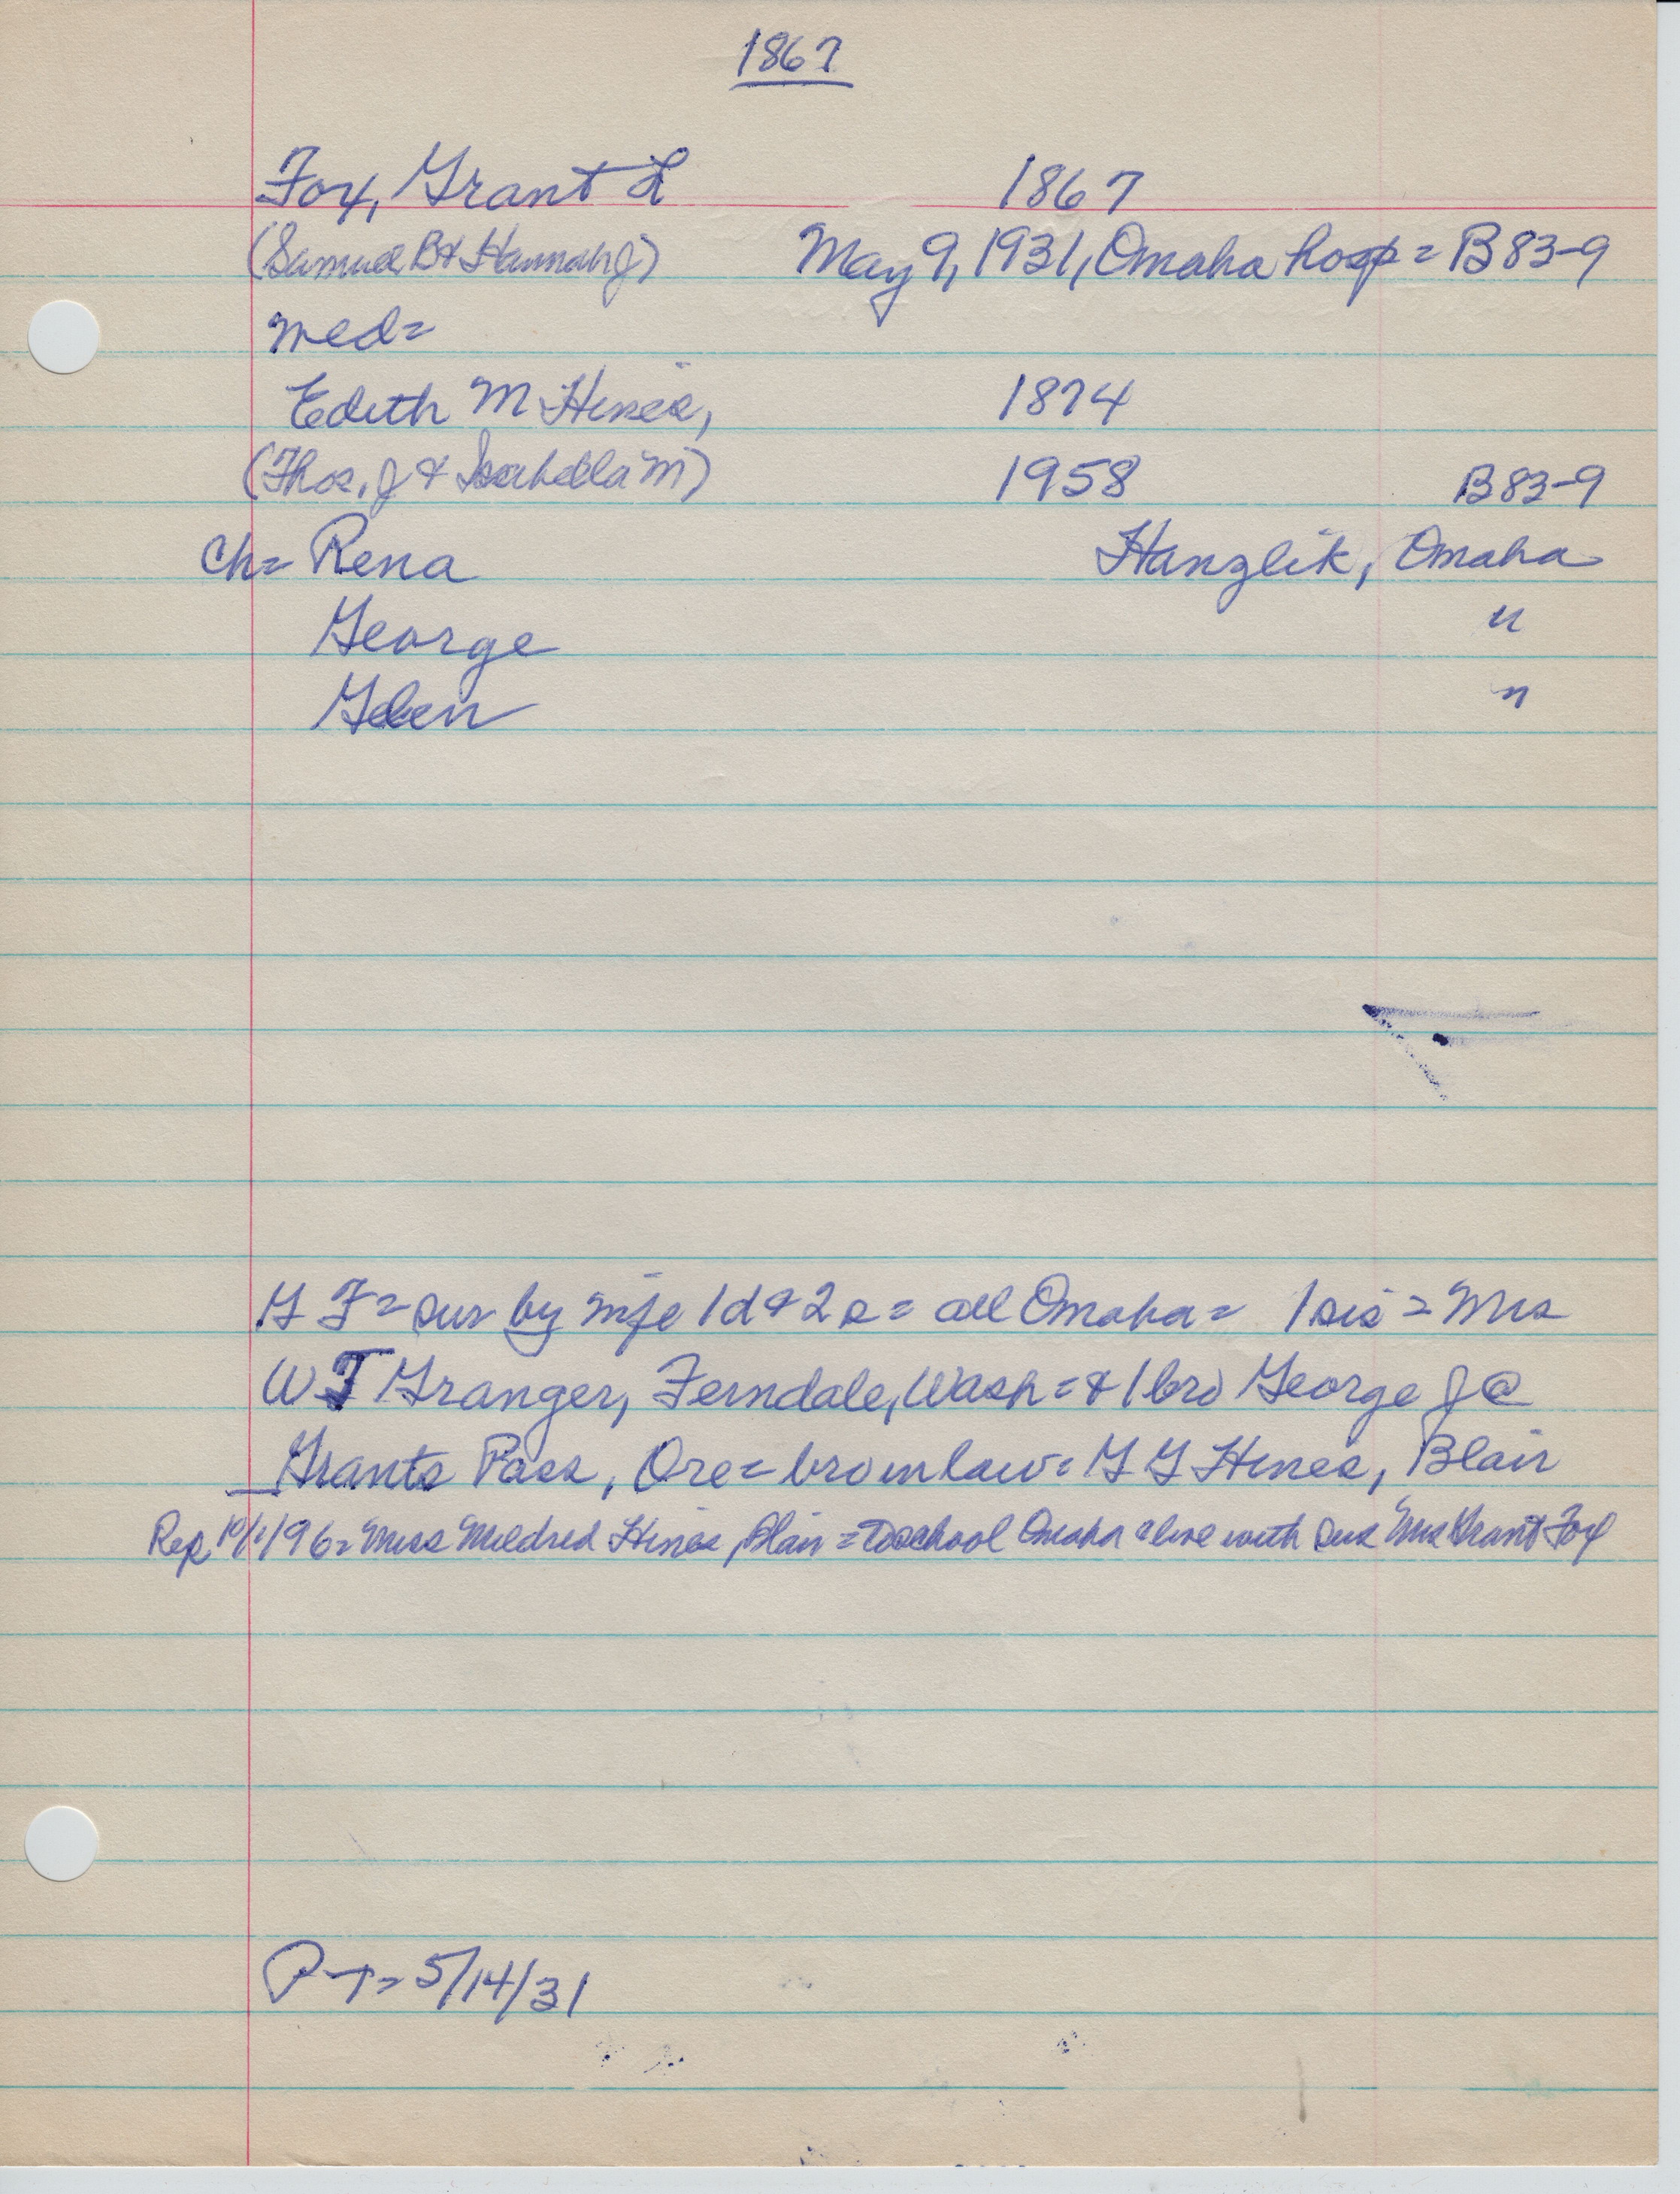 1867
Fox, Grant L 1867
(Samuel B & Hannah J) May 9, 1931, Omaha hosp = B 83-9
med=
Edith M Hines, 1874
(Thos. J & Isabella M) 1958 B 83-9
ch= Rena Hanzlik, Omaha
George "
Glen "
G F = sur by wife 1 d & 2 s = all Omaha = 1 sis = Mrs
W T Granger, Ferndale, Wash = & 1 bro George J @
Grants Pass, Ore = bro in law = G G Hines, Blair
Rep, 96 = Miss Mildred Hines, Blair = to school Omaha & live with sis Mrs Grant Fox
P-T= 5/14/31